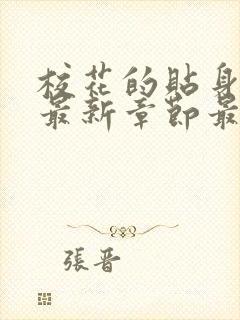 校花的貼身
最新章節最
張晋